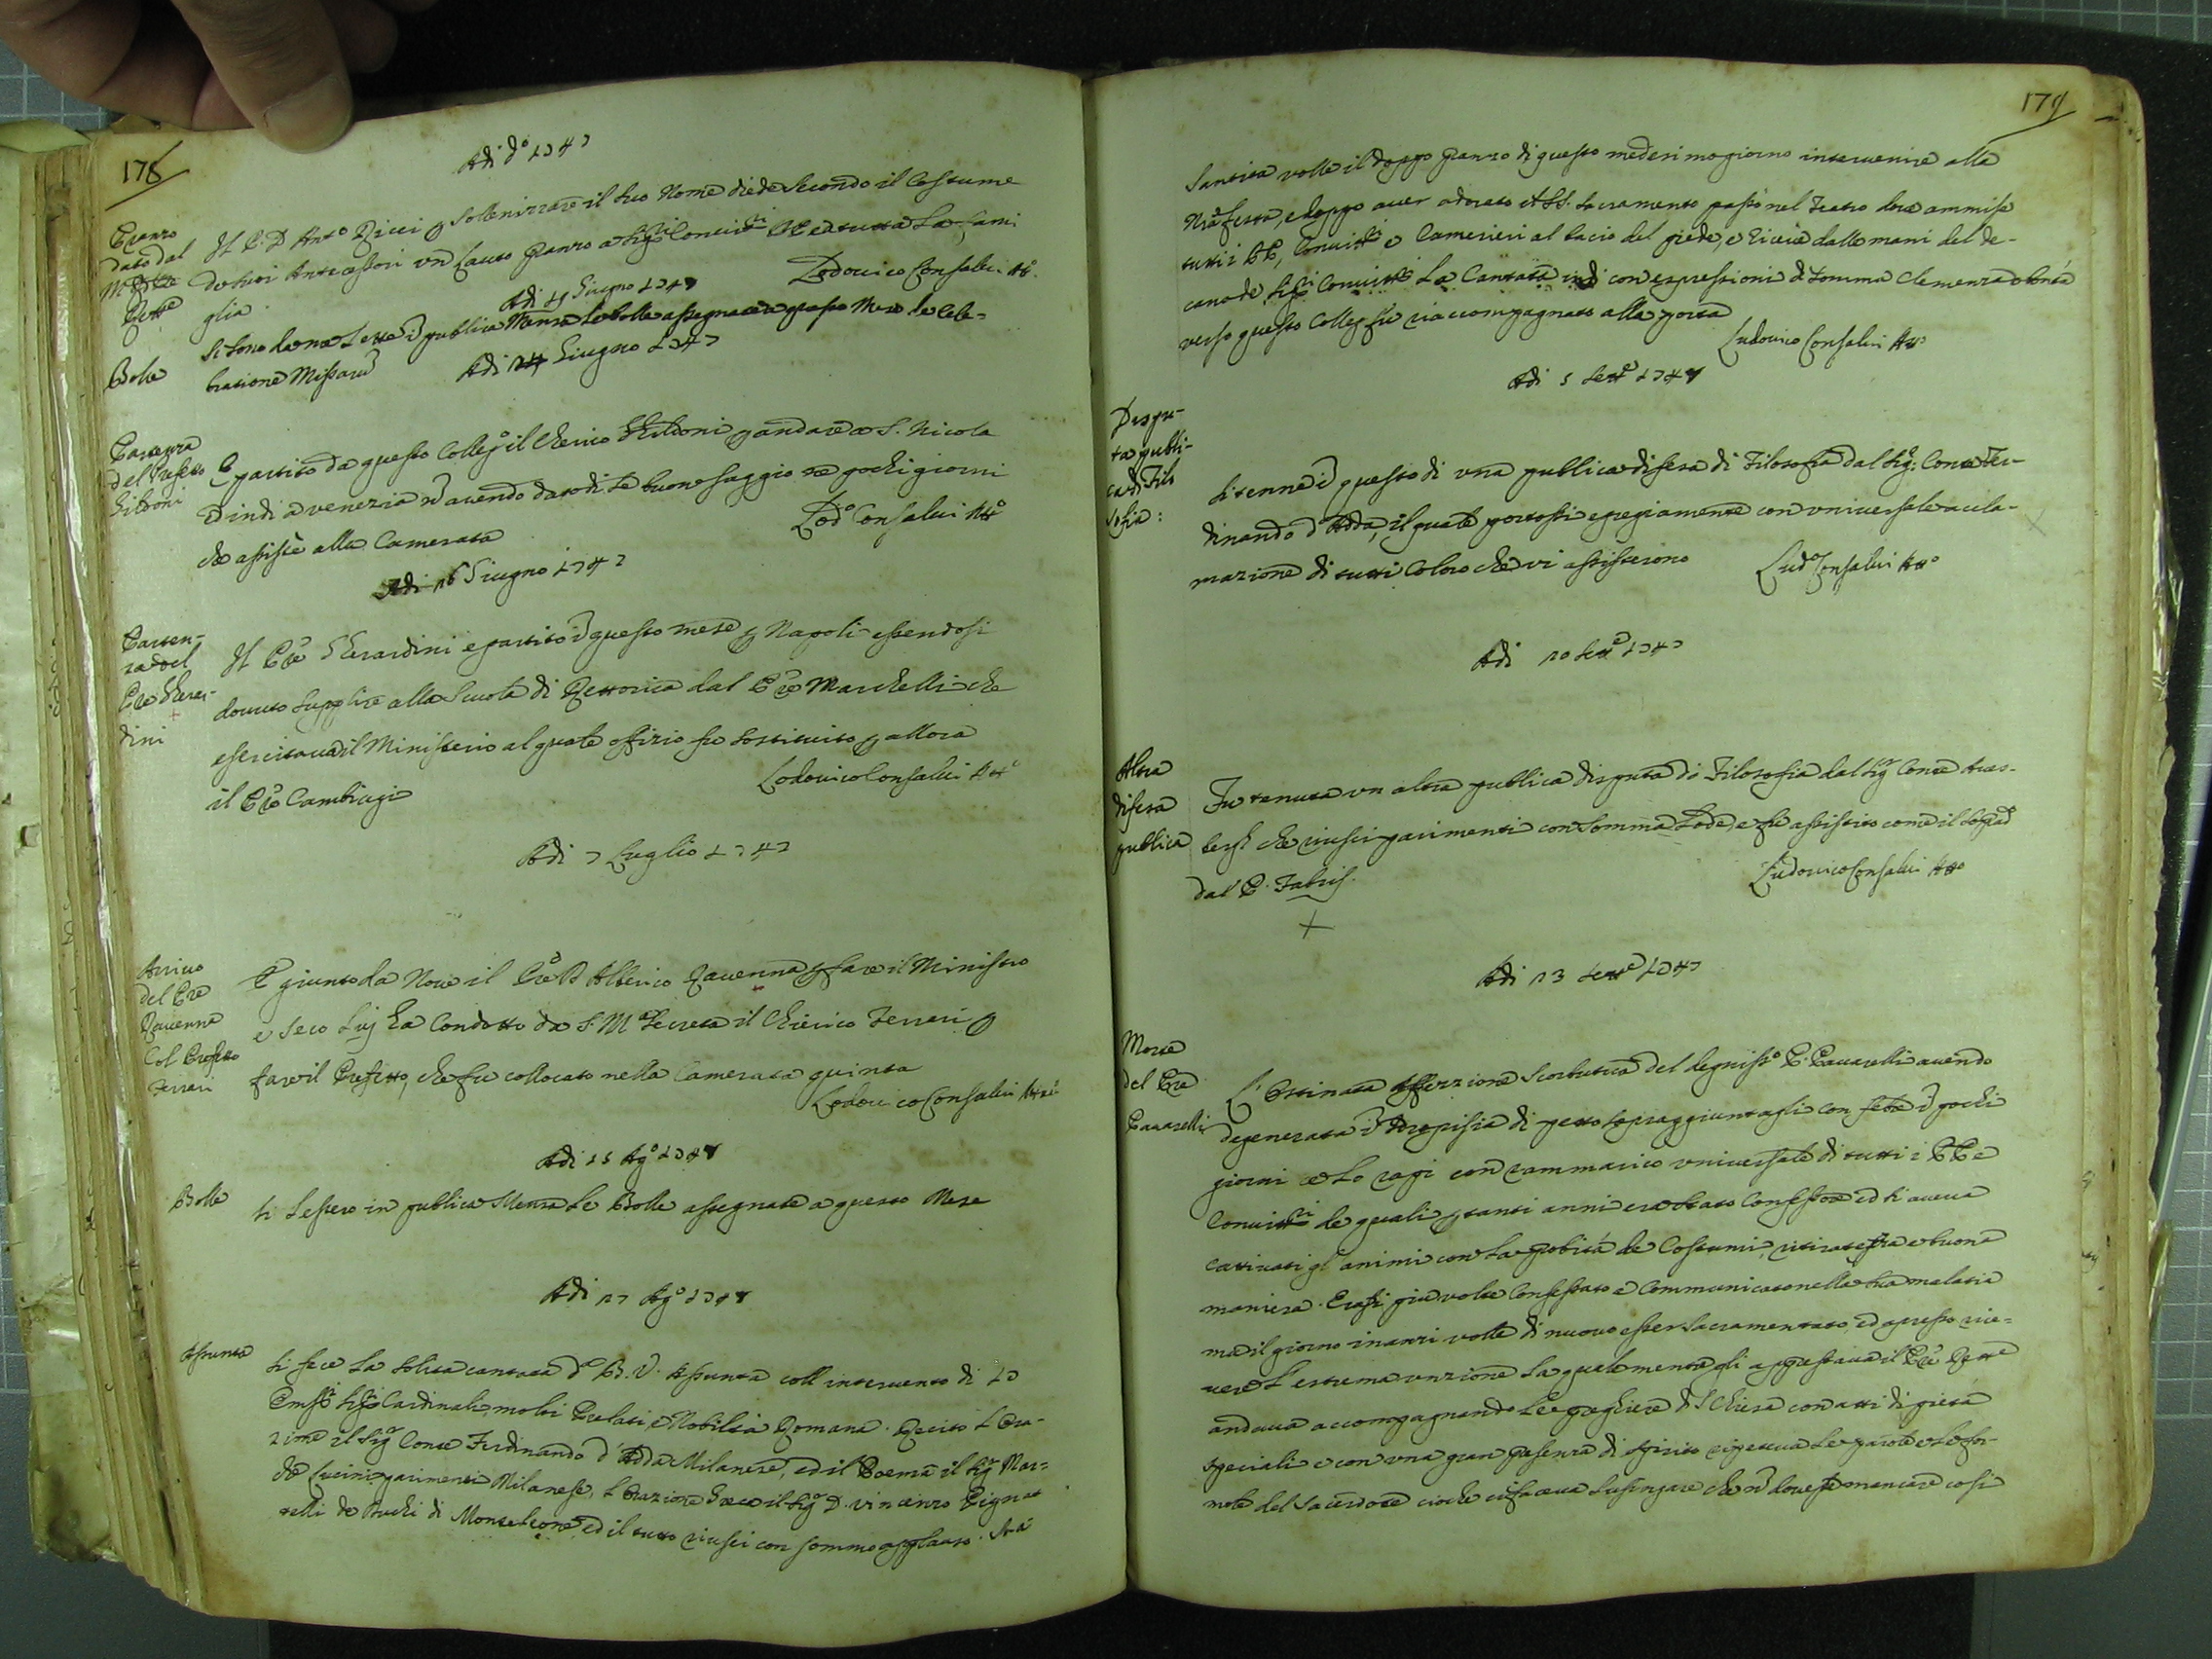 178
Adi d.º 1747
Pranzo
dato dal
M.
Rett.e
Il P. D. Ant.º Ricci p sollenizzare il suo Nome diede secondo il Costume
de suoi Antecessori vn lauto Pranzo a Sig.ri Convitt.ri PP. e a tutta la fami
glia.
Lodovico Consalvi Att.º
Adi 19 Giugno 1747
Bolle
Si sono da me lette i publica Mensa le bolle assegnate a questo Mese de Cele-
bratione Missarū
Adi 24 Giugno 1747
Partenza
del Prefetto
Gildoni
È partito da questo Colleg.º il Chierico Gildoni p andare a S. Nicola
ed indi a Venezia nō avendo dato di se buon saggio ne pochi giorni
che assistè alla Camerata
Lod.º Consalvi Att.º
Adi 26 Giugno 1747
Parten-
za del
Pre Gherar-
dini
Il Pre Gherardini è partito i questo mese p Napoli essendosi
dovuto supplire alla Scuola di Rettorica dal Pre Marchelli che
essercitava il Ministerio al quale offizio fu sostituito p allora
il Pre Cambiagi
Lodovico Consalvi Att.º
Adi 7 Luglio 1747
Arrivo
del Pre
Ravenna
Col Prefetto
Ferreri
È giunto da Nove il Pre D Alberico Ravenna p fare il Ministro
e seco lui ha Condotto da S. M.ª Secreta il Chierico Ferreri p
fare il Prefetto, che fu collocato nella Camerata quinta
Lodovico Consalvi Att.º
Adi 15 Ag.º 1747
Bolle
Si lessero in publica Mensa le Bolle assegnate a questo Mese
Adi 27 Ag.º 1747
Assunta
Si fece la solita cantata d.ª B. V. Assunta coll'intervento di 17
Emss.i Sig.ri Cardinali, molti Prelati, e Nobiltà Romana. Recitò l'Ora-
zione il Sig.r Conte Ferdinando d'Adda Milanese, ed il Poema il Sig.r Mar=
de Lucini parimenti Milanese, l'Orazione il Sig.r D. Vincenzo Pigna
telli de Duchi di Monteleone, ed il tutto riuscì con sommo applauso. Sua
179
Santità volle il doppo Pranzo di questo medesimo giorno intervenire alla
Nrã festa, e doppo aver adorato il SS. Sacramento passò nel Teatro dove ammise
tutti i PP, Convitt.ri e Camerieri al bacio del piede, e ricevè dalle mani del de-
cano de Sig.ri Convitt.ri la Cantata indi con espressioni di somma Clemenza e bontà
verso questo Colleg. fu riaccompagnato alla porta
Ludovico Consalvi Att.º
Adi 5 Sett.e 1747
Dispu-
ta publi-
ca di Filo
sofia:
Si tenne i questo di vna publica difesa di Filosofia dal Sig.r Conte Fer-
dinando d'Adda, il quale portossi egregiamente con vniversale accla-
mazione di tutti Coloro che vi assisterono
Lud.º Consalvi Att.º
Adi 10 Sett.e 1747
Altra
difesa
publica
Fu tenuta vn altra publica disputa di Filosofia dal Sig.r Conte Aves-
bergh che riuscì parimenti con somma Lode, e fu assistito come il sopad
dal P. Fabris.
Ludovico Consalvi Att.º
Adi 13 Sett.e 1747
Morte
del Pre
Pavarelli
L'Ostinata Affezzione Scorbutica del degniss.º P. Pavarelli avendo
degenerata i Idropisia di petto sopraggiuntagli con febre i pochi
giorni ce lo rapì con rammarico vniversale di tutti i PP e
Convitt.ri de quali p tanti anni era stato Confessore ed si aveva
cattivati gl'animi con la probità de Costumi, ritiratezza e buona
maniera. Erasi più volte Confessato e Communicato nella sua malatia
ma il giorno inanzi volle di nuovo esser sacramentato, ed apresso rice=
vere l'estrema vnzione la quale mentre gli apprestava il Pre Rett.e
andava accompagnando le preghiere di S. Chiesa con atti di pietà
speciali e con vna gran presenza di spirito ripeteva le parole e le for-
mole del Sacerdote cioche ci faceva lusingare che nō dovesse mancare così